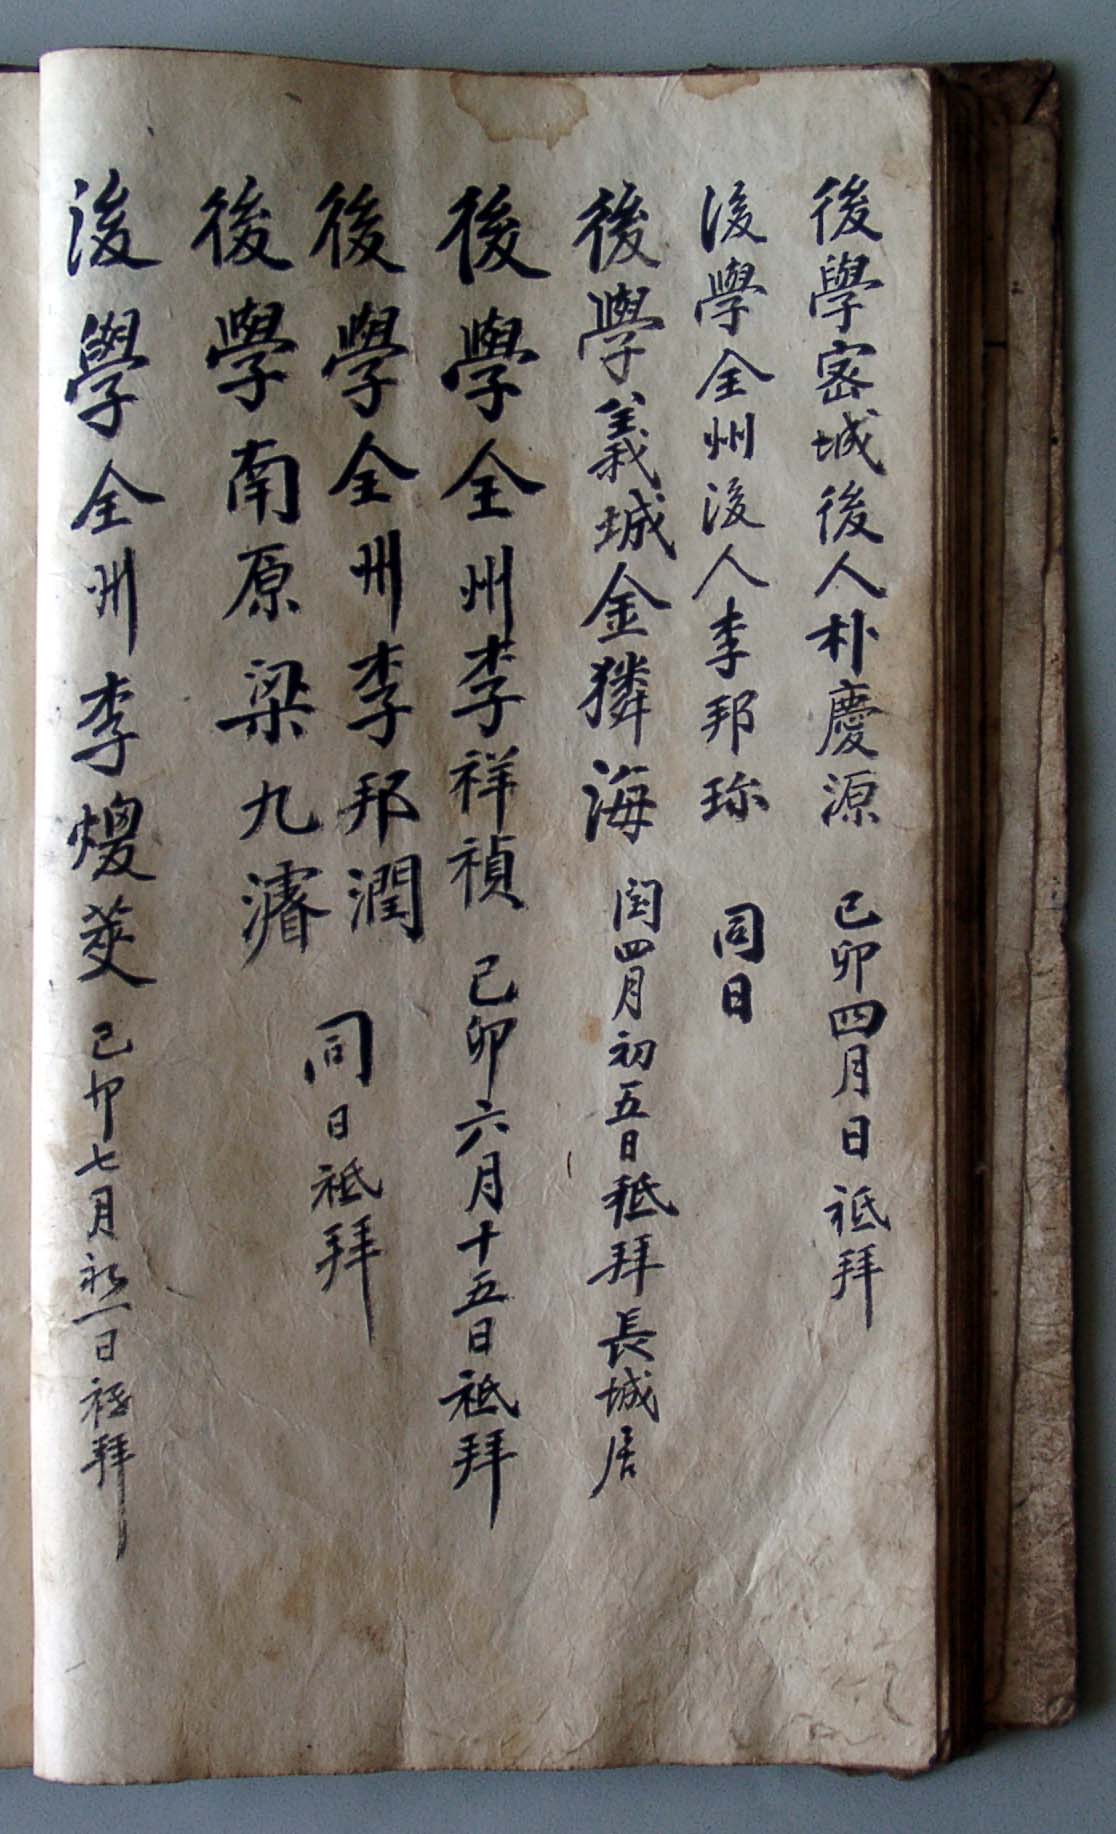 後學密城後人朴慶源 己卯四月日祗拜
後學全州後人李邦珎 同日
後學義城金獜海 閏四月初五日祗拜 長城居
後學全州李祥禎 己卯六月十五日祗拜
後學全州李邦潤
後學南原梁九濬
同日祗拜
後學全州李煖䕫 己卯七月初一日祗拜